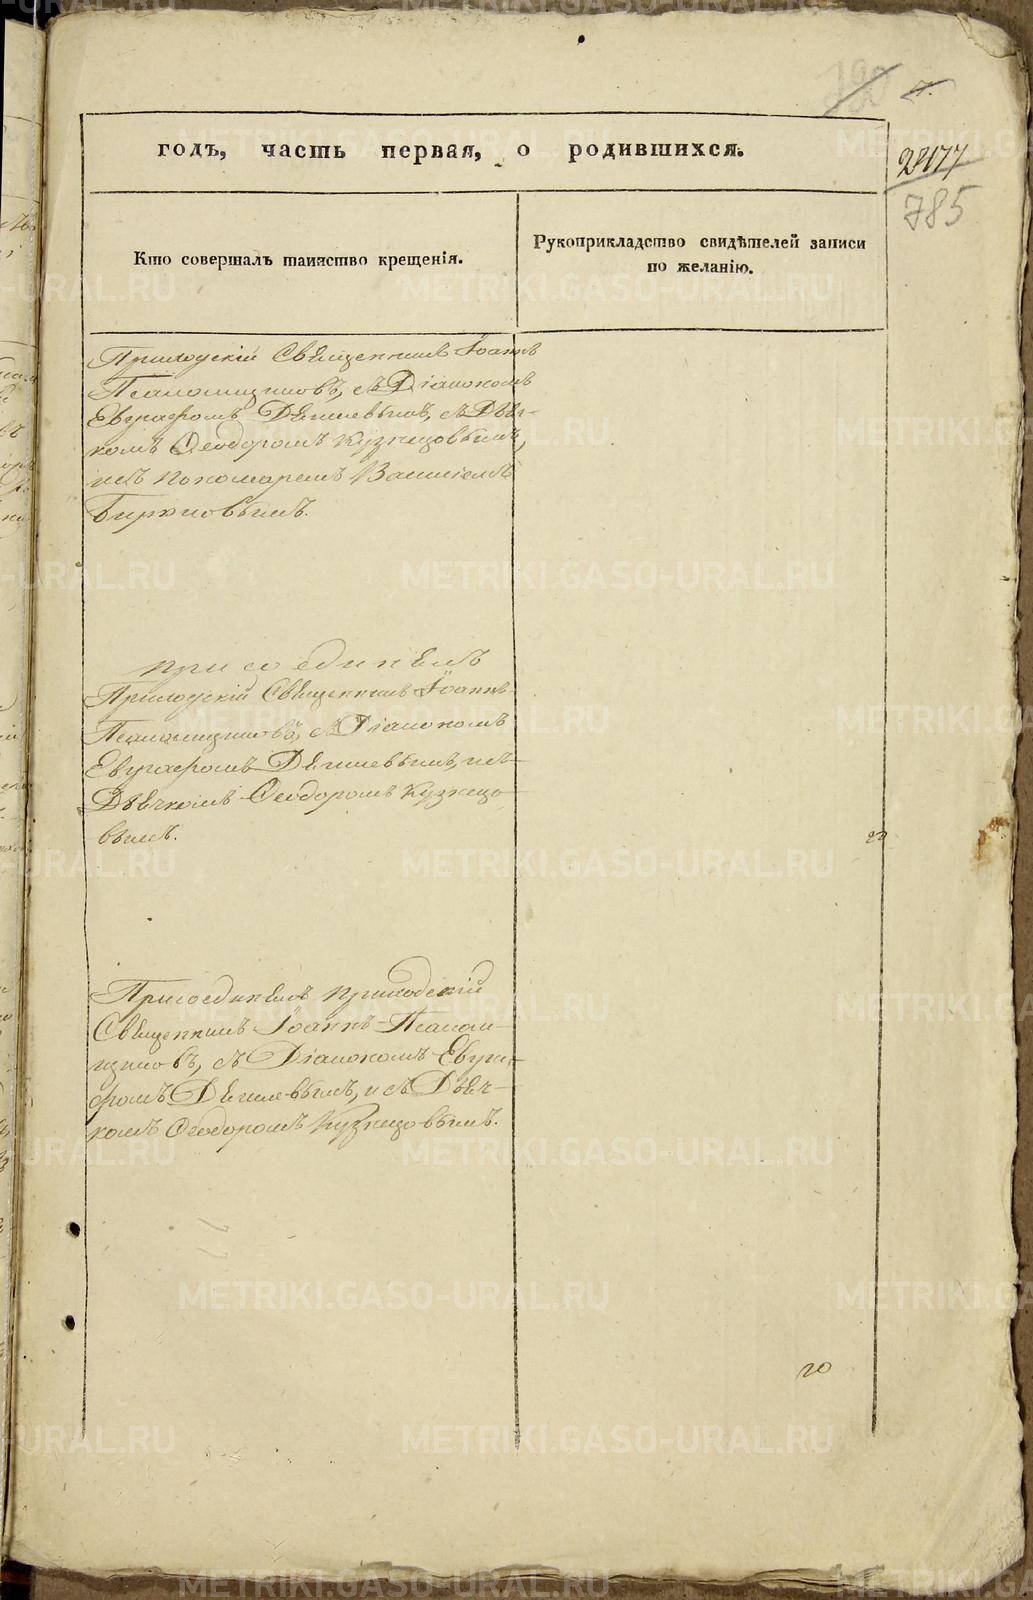 7.
годъ, часть первая, о родившихся.
785
Кто совершалъ таинство крещенія.
Рукоприкладство свидѣтелей записи
по желанію.
Приходскій Священникъ Іоаннъ
съ Діакономъ
Евграфомъ Дѣгилевымъ, съ Дьяч-
комъ Ѳеодоромъ Кузнецовымъ,
и съ пономаремъ
присоединенъ
Приходскій Священникъ Іоаннъ
съ Діакономъ
Евграфомъ Дѣгилевымъ, и съ
Дьячкомъ Ѳеодоромъ Кузнецо-
вымъ.
Присоединенъ приходскій
Священникъ Іоаннъ
съ Діакономъ Евгра-
фомъ Дѣгилевымъ, и съ Дьяч-
комъ Ѳеодоромъ Кузнецовымъ.
METRIKI.GASO-URAL.RU